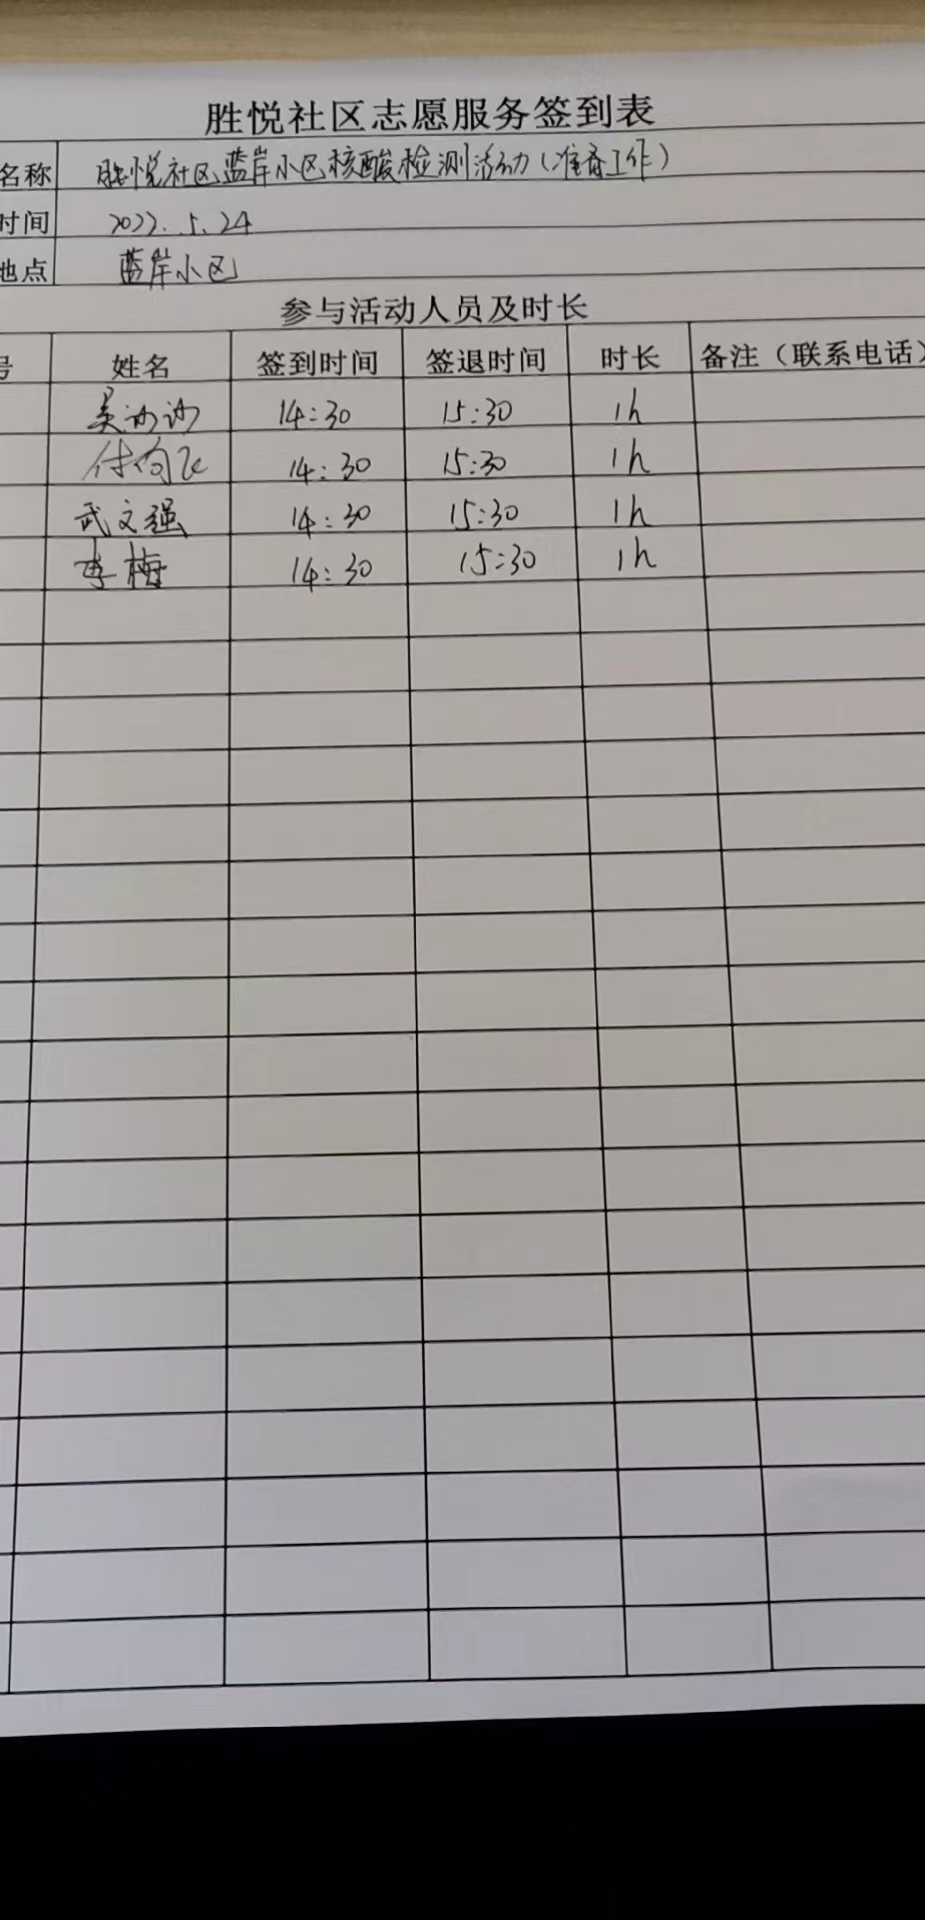 胜悦社区志愿服务签到表
名称 胜悦社区蓝岸小区核酸检测活动(准备工作)
时间 2022.5.24
地点 蓝岸小区
参与活动人员及时长
号 姓名 签到时间 签退时间 时长 备注（联系电话）
吴 14:30 15:30 1h
付向飞 14:30 15:30 1h
武文强 14:30 15:30 1h
李梅 14:30 15:30 1h